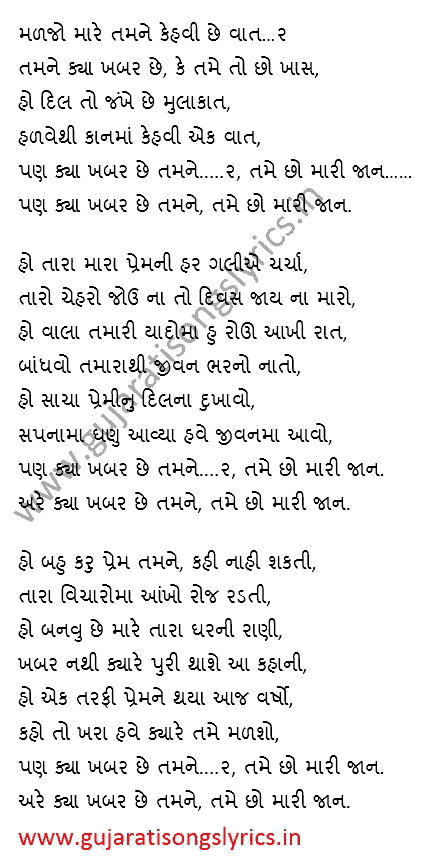 મળજો મારે તમને કેહવી છે વાત...૨
તમને ક્યા ખબર છે, કે તમે તો છો ખાસ,
હો દિલ તો જંખે છે મુલાકાત,
હળવેથી કાનમાં કેહવી એક વાત,
પણ ક્યા ખબર છે તમને.....૨, તમે છો મારી જાન......
પણ ક્યા ખબર છે તમને, તમે છો મારી જાન.
હો તારા મારા પ્રેમની હર ગલીએ ચર્ચા,
તારો ચેહરો જોઉ ના તો દિવસ જાય ના મારો,
હો વાલા તમારી યાદોમા હુ રોઊ આખી રાત,
બાંધવો તમારાથી જીવન ભરનો નાતો,
હો સાચા પ્રેમીનુ દિલના દુખાવો,
સપનામા ઘણુ આવ્યા હવે જીવનમા આવો,
પણ ક્યા ખબર છે તમને....૨, તમે છો મારી જાન.
અરે ક્યા ખબર છે તમને, તમે છો મારી જાન.
હો બહુ કરુ પ્રેમ તમને, કહી નાહી શકતી,
તારા વિચારોમા આંખો રોજ રડતી,
હો બનવુ છે મારે તારા ઘરની રાણી,
ખબર નથી ક્યારે પુરી થાશે આ કહાની,
હો એક તરફી પ્રેમને થયા આજ વર્ષો,
કહો તો ખરા હવે ક્યારે તમે મળશો,
પણ ક્યા ખબર છે તમને....૨, તમે છો મારી જાન.
અરે ક્યા ખબર છે તમને, તમે છો મારી જાન.
www.gujaratisongslyrics.in
www.gujaratisongslyrics.in